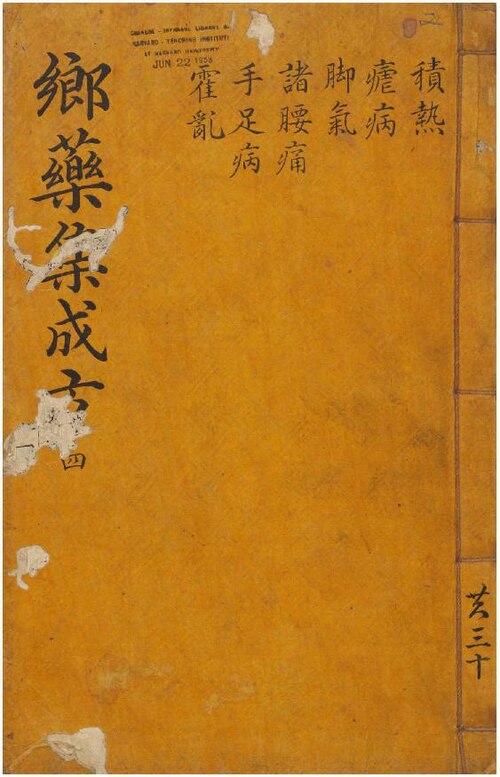 積熱
瘧病
脚氣
諸腰痛
手足病
霍亂
鄉藥集成方
四
共三十
CHINESE - JAPANESE LIBRARY OF
HARVARD - YENCHING INSTITUTE
AT HARVARD UNIVERSITY
JUN 22 1956